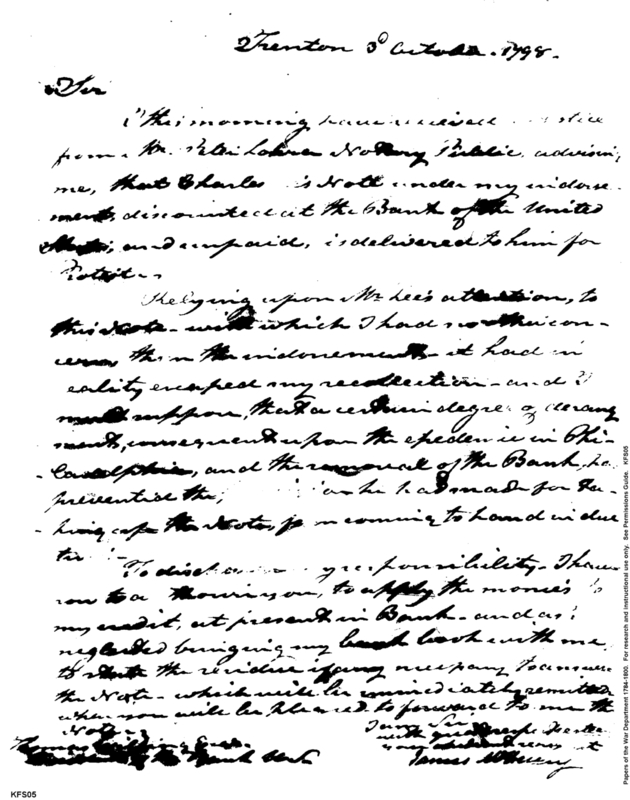 Trenton 3d October. 1798.
Sir
this morning have received
from a Mr. Peter Lohra Notary Public, advising
me, that Charles Note under my indorse-
ment, discounted at the Bank of the United
States, and unpaid, is delivered to him for
Protest
Relying upon Mr Lee's attention, to
this Note - with which I had no other con-
cern, than the indorsement - it had in
reality escaped my recollection - and I
must suppose, that a certain degree of derang
ment, consequent upon the epidemic in Phi-
ladelphia, and the removal of the Bank, has
prevented the, he had made for Ta-
king up the Note, from coming to hand in due
To discharge my responsibility - I have
now to authorise you, to apply the monies to
my credit, at present in Bank - and as I
neglected bringing my bank book with me
to State the residue if any necessary to answer
the Note - which will be immediately remitted
when you will be pleased to forward to me the
Note.
I am Sir
with great respect
your obedient servant
James McHenry
Thomas Esqr.
of the Bank
KFS05
Papers of the War Department 1784-1800. For research and instructional use only. See Permissions Guide. KFS05